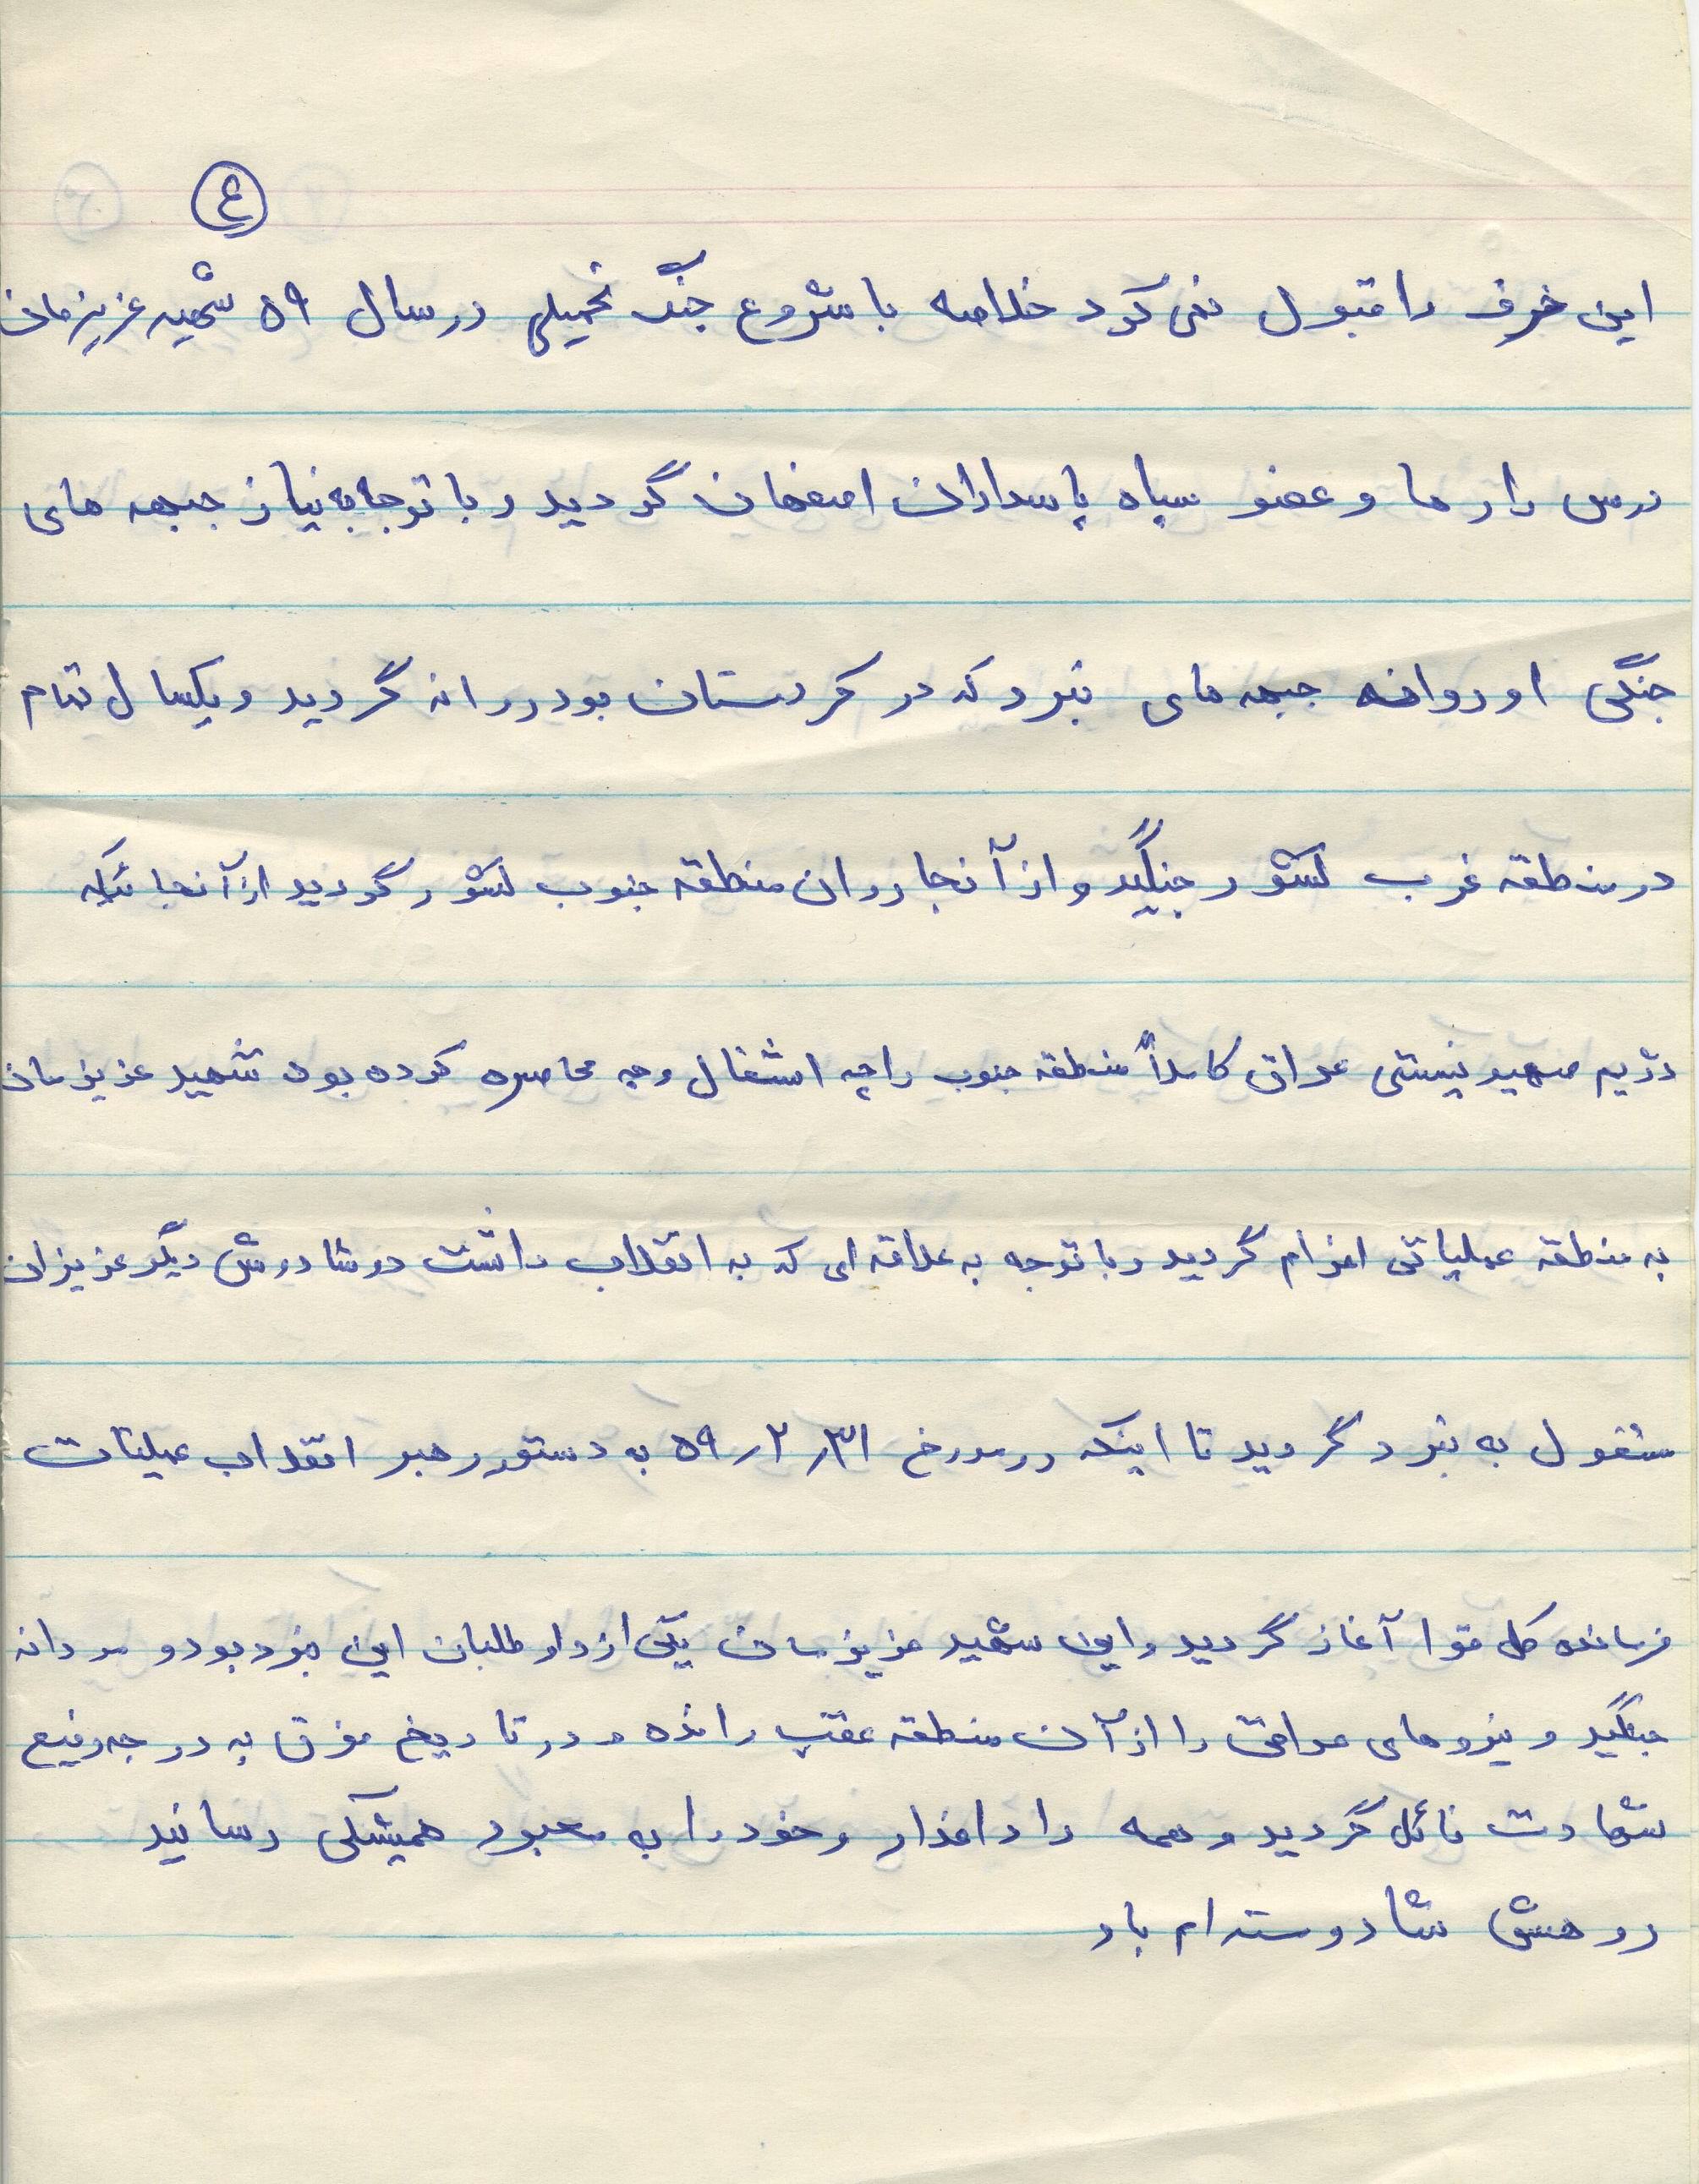 ۴
این حرف را قبول نمی کرد خلاصه با شروع جنگ تحمیلی در سال ۵۹ شهید عزیزمان
درس را رها و عضو سپاه پاسداران اصفهان گردید و با توجه به نیاز جبهه های
جنگی او روانه جبهه های نبرد که در کردستان بود روانه گردید و یکسال تمام
در منطقه غرب کشور جنگید و از آنجا روان منطقه جنوب کشور گردید از آنجائیکه
رژیم صهیونیستی عراق کاملاً منطقه جنوب را چه اشغال و چه محاصره کرده بود شهید عزیزمان
به منطقه عملیاتی اعزام گردید و با توجه به علاقه ای که به انقلاب داشت دوشادوش دیگر عزیزان
مشغول به نبرد گردید تا اینکه در مورخ ۵۹٫۲٫۳۱ به دستور رهبر انقلاب عملیات
فرمانده کل قوا آغاز گردید و این شهید عزیزمان یکی از داوطلبان این نبرد بود و مردانه
جنگید و نیروهای عراقی را از آن منطقه عقب رانده و در تاریخ فوق به درجه رفیع
شهادت نائل گردید و همه را داغدار و خود را به معبود همیشگی رسانید
روحش شاد و مستدام باد